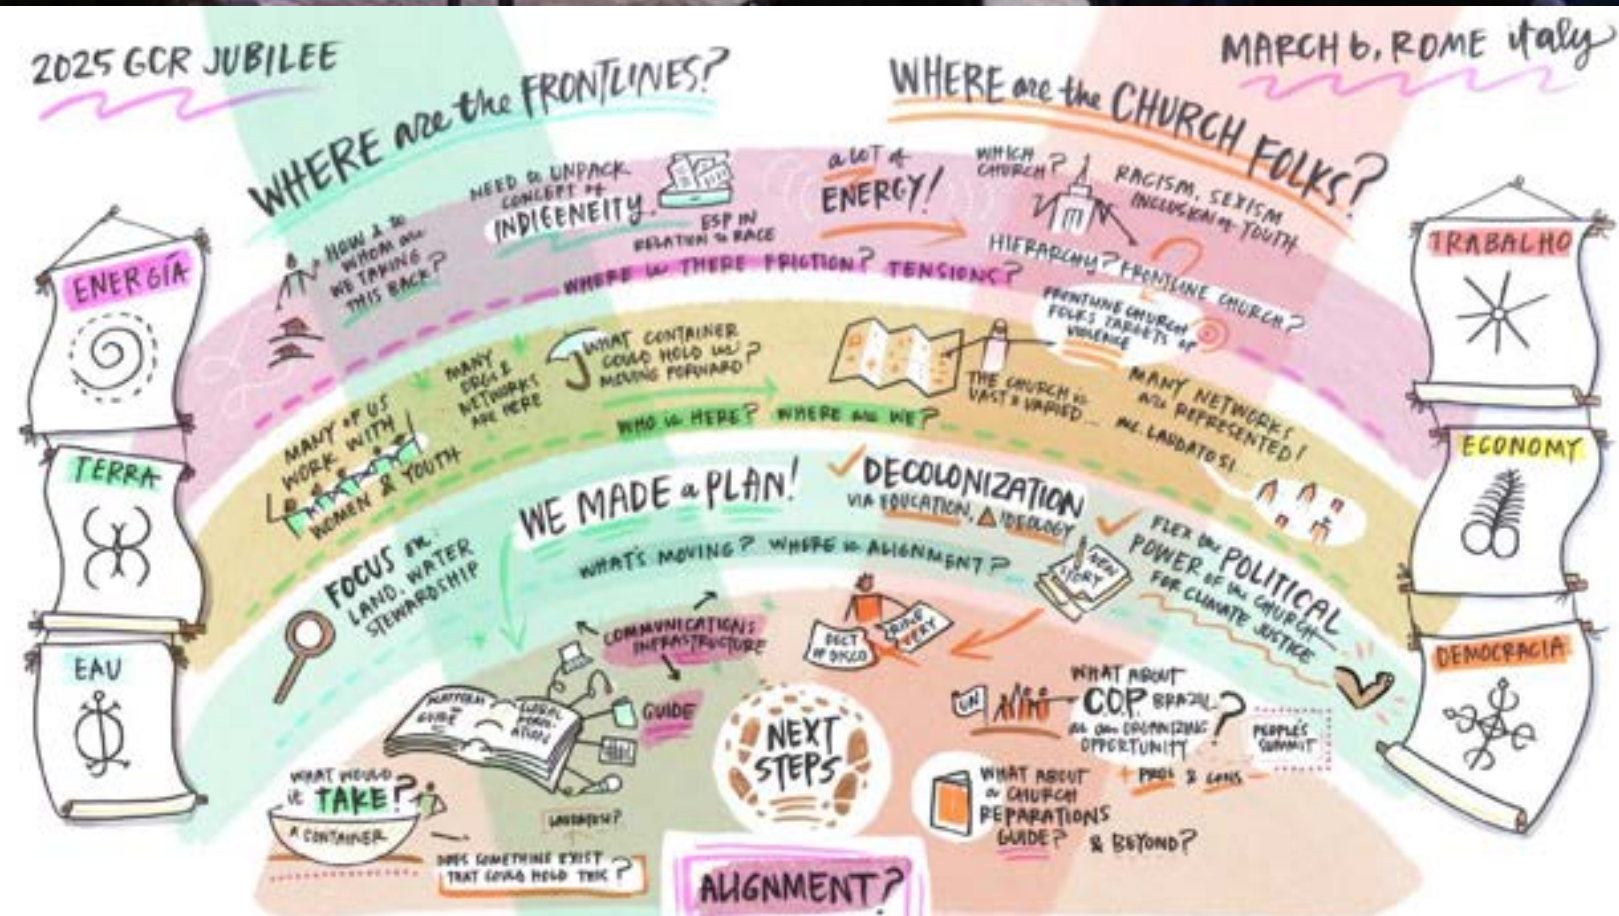 2025 GCR JUBILEE
MARCH 6, ROME italy
WHERE are the FRONTLINES?
WHERE are the CHURCH FOLKS?
HOW & to
WHOM are
WE TAKING
THIS BACK?
NEED to UNPACK
CONCEPT of
INDIGENEITY.
ESP IN
RELATION to RACE
a LOT of
ENERGY!
WHICH
CHURCH?
RACISM, SEXISM
INCLUSION of YOUTH
HIERARCHY? FRONTLINE CHURCH?
WHERE is THERE FRICTION? TENSIONS?
FRONTLINE CHURCH
FOLKS TARGETS OF
VIOLENCE
MANY OF US
WORK WITH
WOMEN & YOUTH
MANY
ORGS &
NETWORKS
ARE HERE
WHAT CONTAINER
COULD HOLD us
MOVING FORWARD?
THE CHURCH is
VAST & VARIED...
MANY NETWORKS
are REPRESENTED!
inc. LAUDATO SI
WHO is HERE? WHERE are WE?
WE MADE a PLAN!
DECOLONIZATION
VIA EDUCATION, IDEOLOGY
FLEX the POLITICAL
POWER of the CHURCH
FOR CLIMATE JUSTICE
NEW
STORY
WHAT'S MOVING? WHERE is ALIGNMENT?
FOCUS on:
LAND, WATER
STEWARDSHIP
COMMUNICATIONS
INFRASTRUCTURE
GUIDE
PLATFORM
GUIDE
GLOBAL
DOCT
OF DISCO
VERY
NEXT
STEPS
UN
WHAT ABOUT
C.O.P. BRAZIL
as an ORGANIZING
OPPORTUNITY?
PEOPLE'S
SUMMIT
+ PROS & CONS -
WHAT ABOUT
a CHURCH
REPARATIONS
GUIDE?
& BEYOND?
WHAT WOULD
it TAKE?
A CONTAINER
DOES SOMETHING EXIST
THAT COULD HOLD THIS?
ALIGNMENT?
ENERGÍA
TERRA
EAU
TRABALHO
ECONOMY
DEMOCRACIA